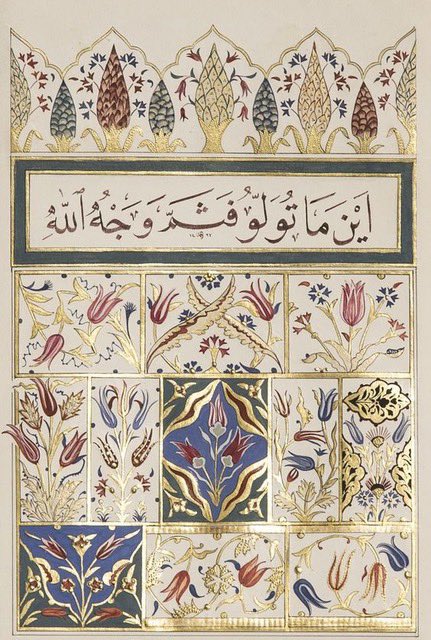 اَيْنَ مَا تُوَلُّو فَثَمَّ وَجْهُ اللّٰهِ